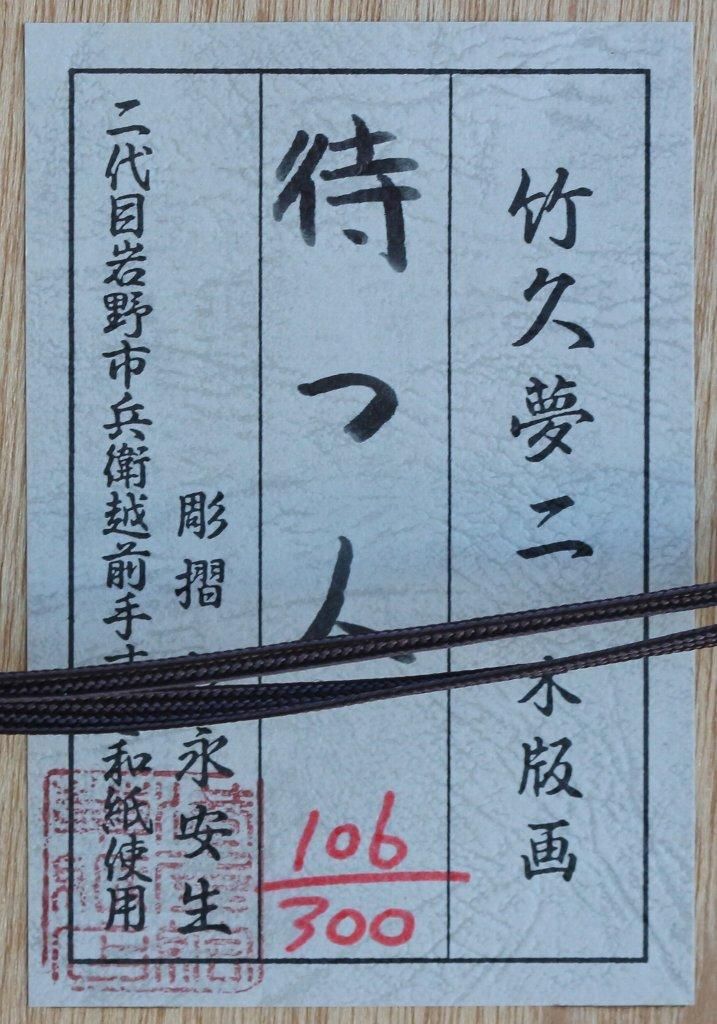 竹久夢二 木版画
待つ人
106
300
彫摺 永安生
二代目岩野市兵衛越前手 和紙使用